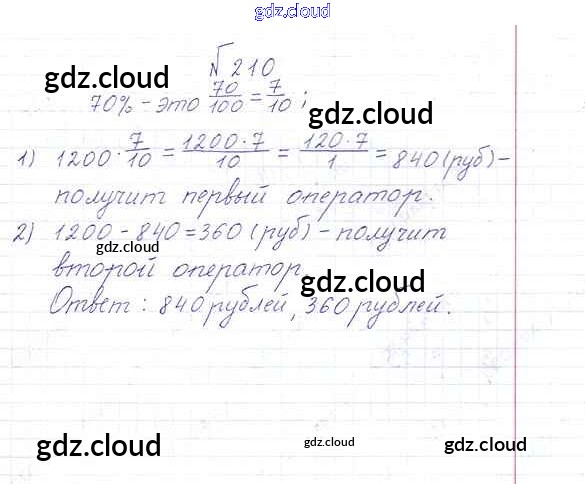 gdz.cloud
№210
gdz.cloud
70% - это 70/100 = 7/10;
gdz.cloud
1) 1200 · 7/10 = 1200·7/10 = 120·7/1 = 840 (руб) -
получит первый оператор.
2) 1200 - 840 = 360 (руб) - получит
gdz.cloud
второй оператор.
gdz.cloud
Ответ: 840 рублей, 360 рублей.
gdz.cloud
gdz.cloud
gdz.cloud